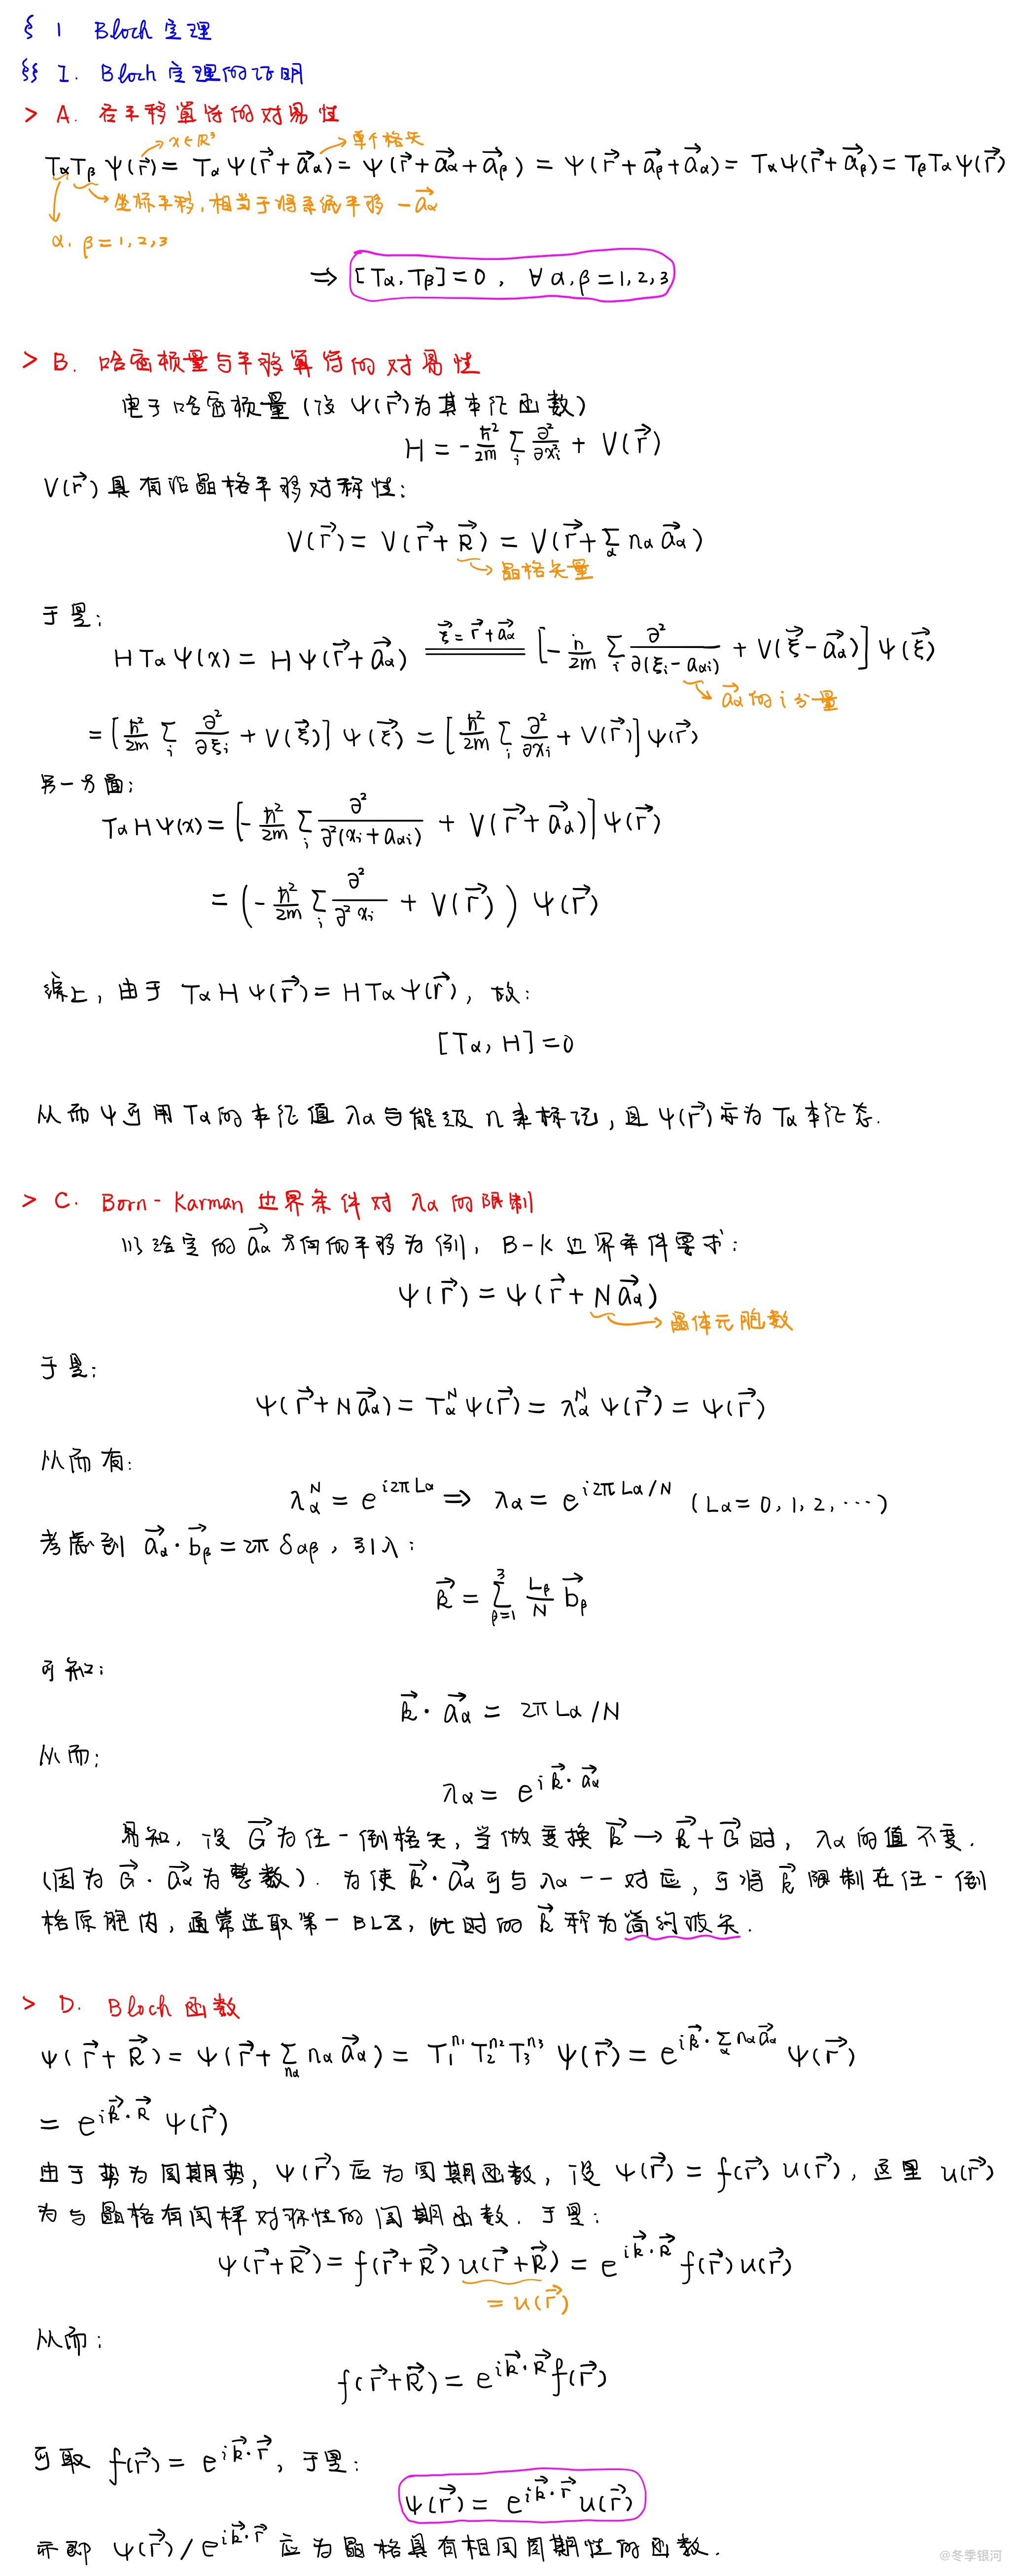 § 1 Bloch 定理
§§ I. Bloch 定理的证明
> A. 各平移算符的对易性
→ x∈R³ → 单个格矢
TαTβ ψ(r⃗) = Tα ψ(r⃗+a⃗α) = ψ(r⃗+a⃗α+a⃗β) = ψ(r⃗+a⃗β+a⃗α) = Tα ψ(r⃗+a⃗β) = TβTα ψ(r⃗)
→ 坐标平移,相当于将系统平移 -a⃗α
α, β = 1, 2, 3
⇒ [Tα, Tβ] = 0, ∀ α, β = 1, 2, 3
> B. 哈密顿量与平移算符的对易性
电子哈密顿量 (设 ψ(r⃗) 为其本征函数)
H = -ℏ²/2m Σi ∂²/∂xi² + V(r⃗)
V(r⃗) 具有沿晶格平移对称性:
V(r⃗) = V(r⃗+R⃗) = V(r⃗+Σα nα a⃗α)
→ 晶格矢量
于是:
H Tα ψ(x) = H ψ(r⃗+a⃗α) ξ⃗=r⃗+a⃗α ═══ [-ℏ/2m Σi ∂²/∂(ξi-aαi) + V(ξ⃗-a⃗α)] ψ(ξ⃗)
→ a⃗α 的 i 分量
= [ℏ²/2m Σi ∂²/∂ξi + V(ξ⃗)] ψ(ξ⃗) = [ℏ²/2m Σi ∂²/∂xi + V(r⃗)] ψ(r⃗)
另一方面:
Tα H ψ(x) = [-ℏ²/2m Σi ∂²/∂²(xi+aαi) + V(r⃗+a⃗α)] ψ(r⃗)
= (-ℏ²/2m Σi ∂²/∂²xi + V(r⃗)) ψ(r⃗)
综上, 由于 Tα H ψ(r⃗) = H Tα ψ(r⃗), 故:
[Tα, H] = 0
从而 ψ 可用 Tα 的本征值 λα 与能级 n 来标记, 且 ψ(r⃗) 亦为 Tα 本征态.
> C. Born-Karman 边界条件对 λα 的限制
以给定的 a⃗α 方向的平移为例, B-K 边界条件要求:
ψ(r⃗) = ψ(r⃗+N a⃗α)
→ 晶体元胞数
于是:
ψ(r⃗+N a⃗α) = Tα^N ψ(r⃗) = λα^N ψ(r⃗) = ψ(r⃗)
从而有:
λα^N = e^{i2πLα} ⇒ λα = e^{i2πLα/N} (Lα = 0, 1, 2, ⋯)
考虑到 a⃗α·b⃗β = 2π δαβ, 引入:
k⃗ = Σ_{β=1}^{3} Lβ/N b⃗β
可知:
k⃗·a⃗α = 2πLα/N
从而:
λα = e^{ik⃗·a⃗α}
易知, 设 G⃗ 为任一倒格矢, 当做变换 k⃗→k⃗+G⃗ 时, λα 的值不变.
(因为 G⃗·a⃗α 为整数). 为使 k⃗·a⃗α 可与 λα 一一对应, 可将 k⃗ 限制在任一倒
格原胞内, 通常选取第一BLZ, 此时的 k⃗ 称为简约波矢.
> D. Bloch 函数
ψ(r⃗+R⃗) = ψ(r⃗+Σnα nα a⃗α) = T₁^{n₁} T₂^{n₂} T₃^{n₃} ψ(r⃗) = e^{ik⃗·Σα nα a⃗α} ψ(r⃗)
= e^{ik⃗·R⃗} ψ(r⃗)
由于势为周期势, ψ(r⃗) 应为周期函数, 设 ψ(r⃗) = f(r⃗) u(r⃗), 这里 u(r⃗)
为与晶格有同样对称性的周期函数. 于是:
ψ(r⃗+R⃗) = f(r⃗+R⃗) u(r⃗+R⃗) = e^{ik⃗·R⃗} f(r⃗) u(r⃗)
= u(r⃗)
从而:
f(r⃗+R⃗) = e^{ik⃗·R⃗} f(r⃗)
可取 f(r⃗) = e^{ik⃗·r⃗}, 于是:
ψ(r⃗) = e^{ik⃗·r⃗} u(r⃗)
亦即 ψ(r⃗)/e^{ik⃗·r⃗} 应为晶格具有相同周期性的函数.
@冬季银河